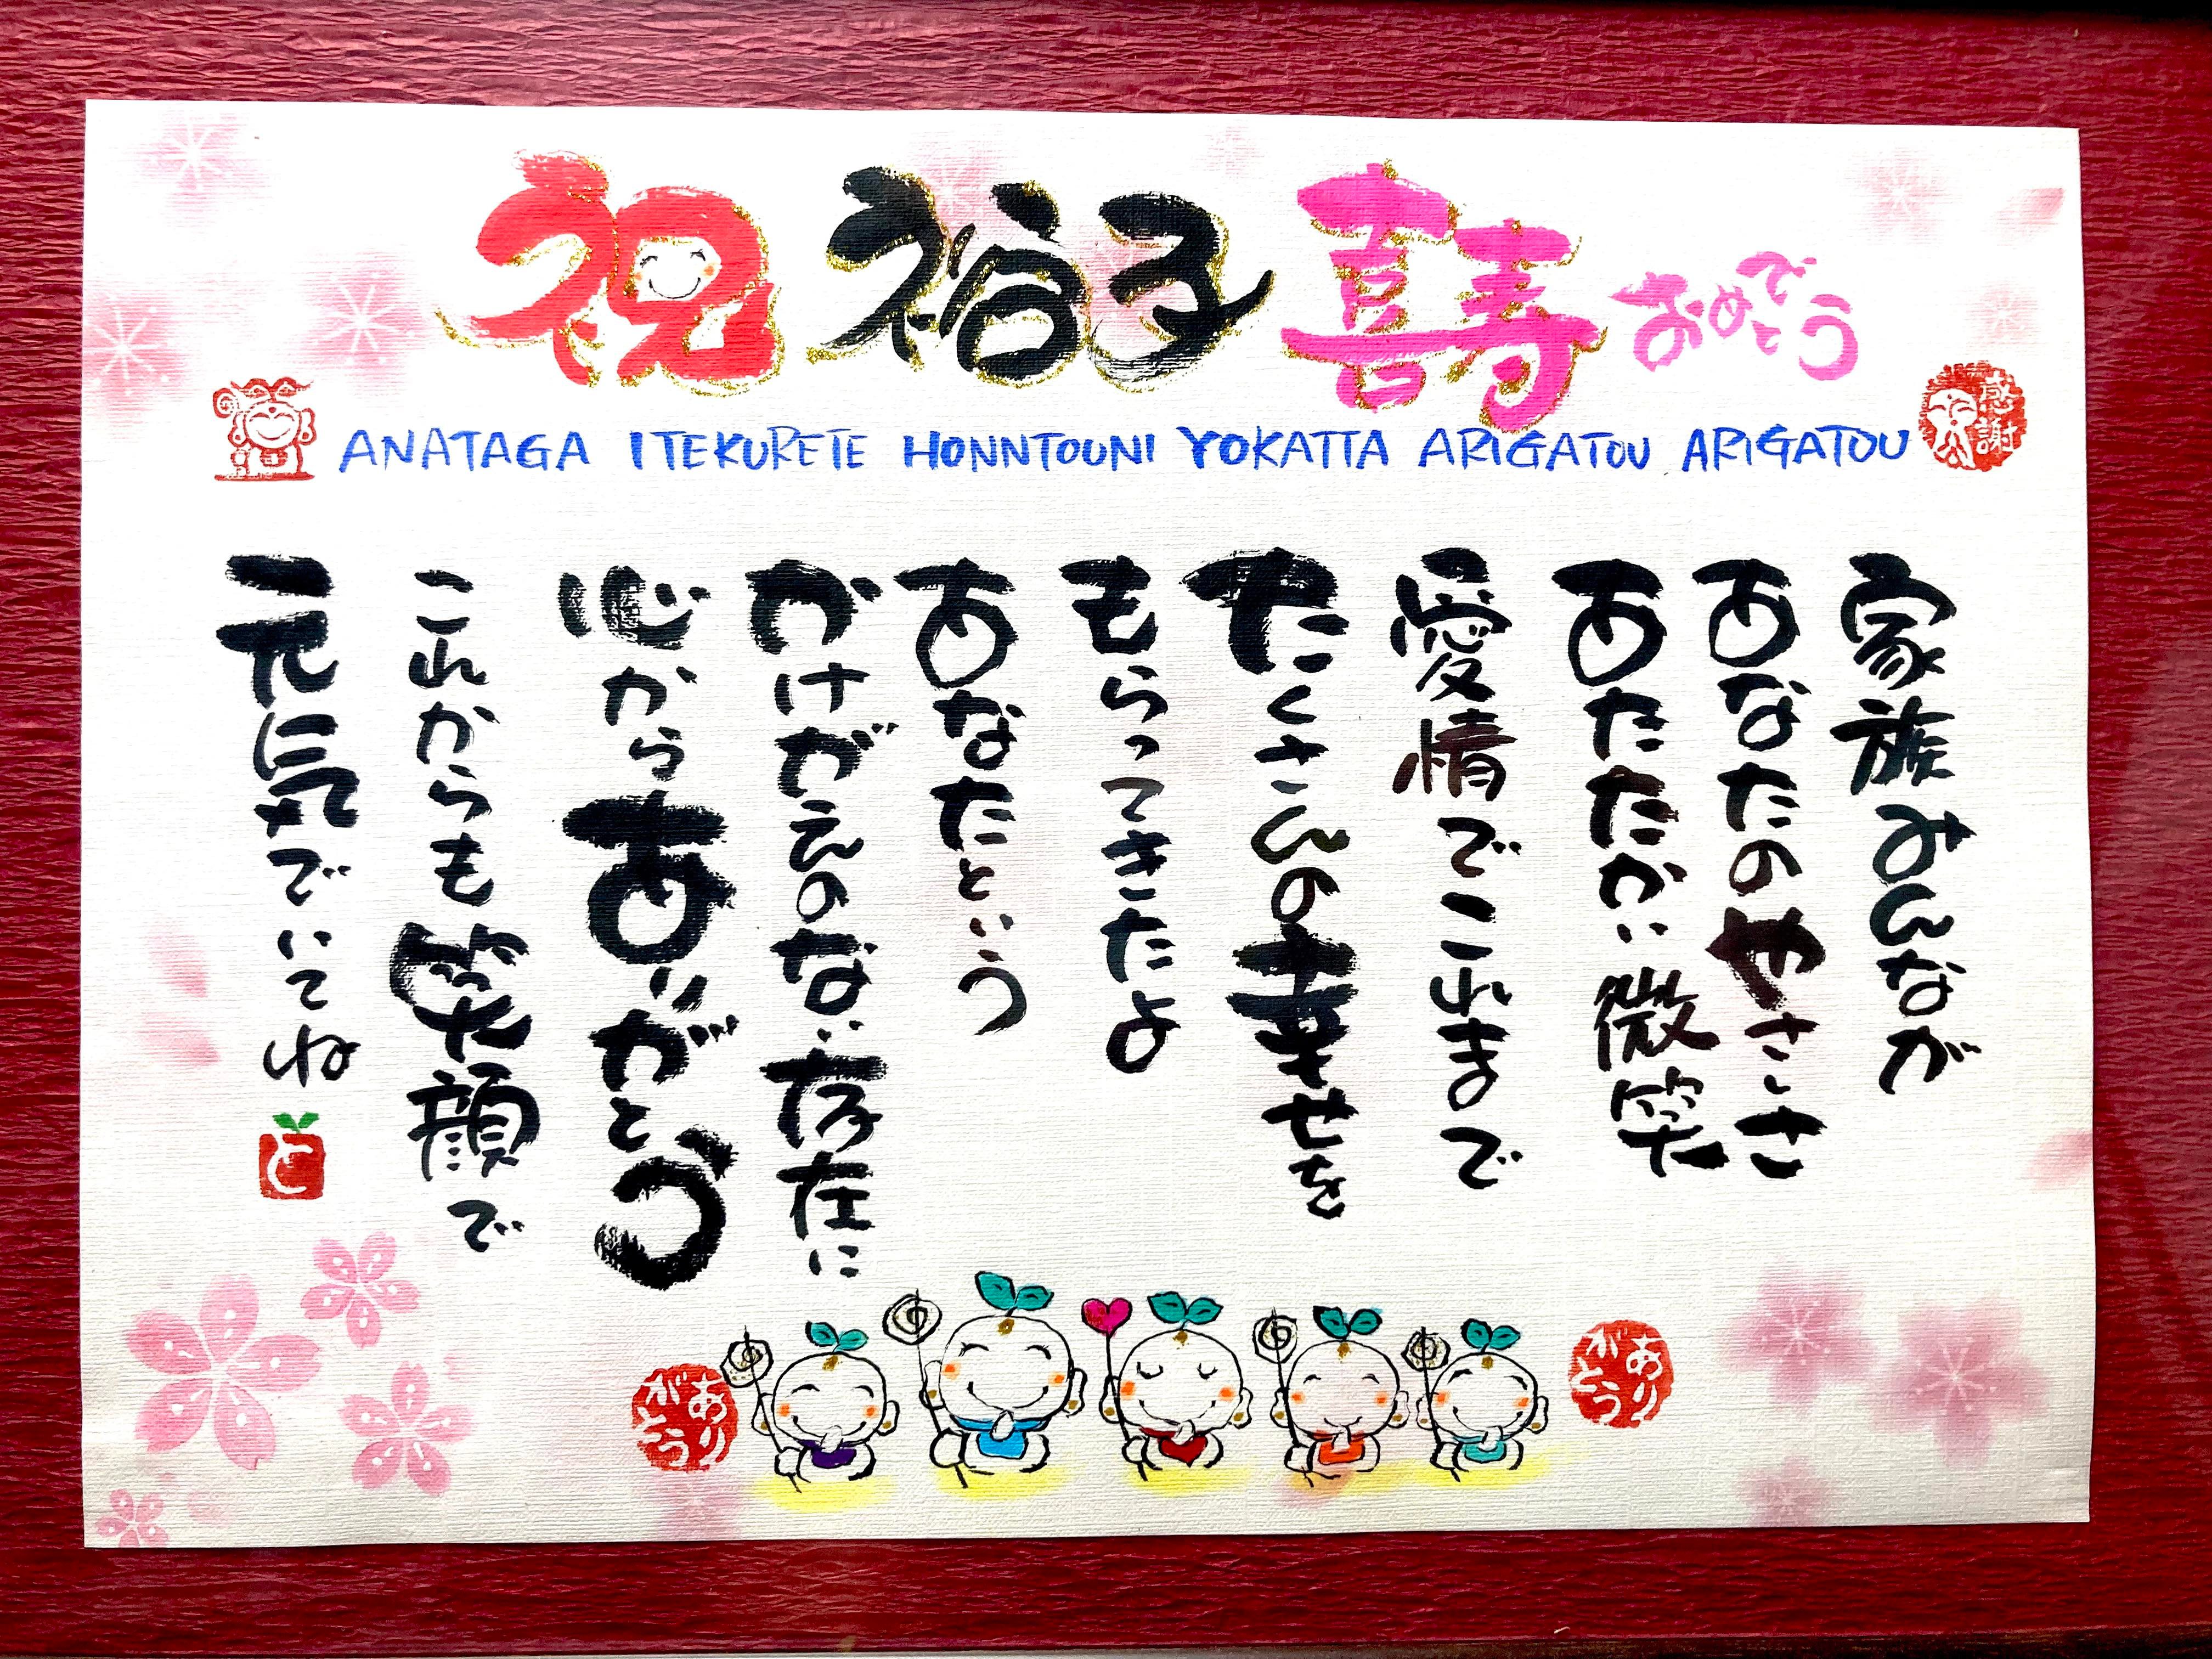 祝 裕子 喜寿 おめでとう
感謝
ANATAGA ITEKURETE HONNTOUNI YOKATTA ARIGATOU ARIGATOU
家族みんなが
あなたのやさしさ
あたたかい微笑
愛情でこれまで
たくさんの幸せを
もらってきたよ
あなたという
かけがえのない存在に
心からありがとう
これからも笑顔で
元気でいてね
と
ありがとう
ありがとう